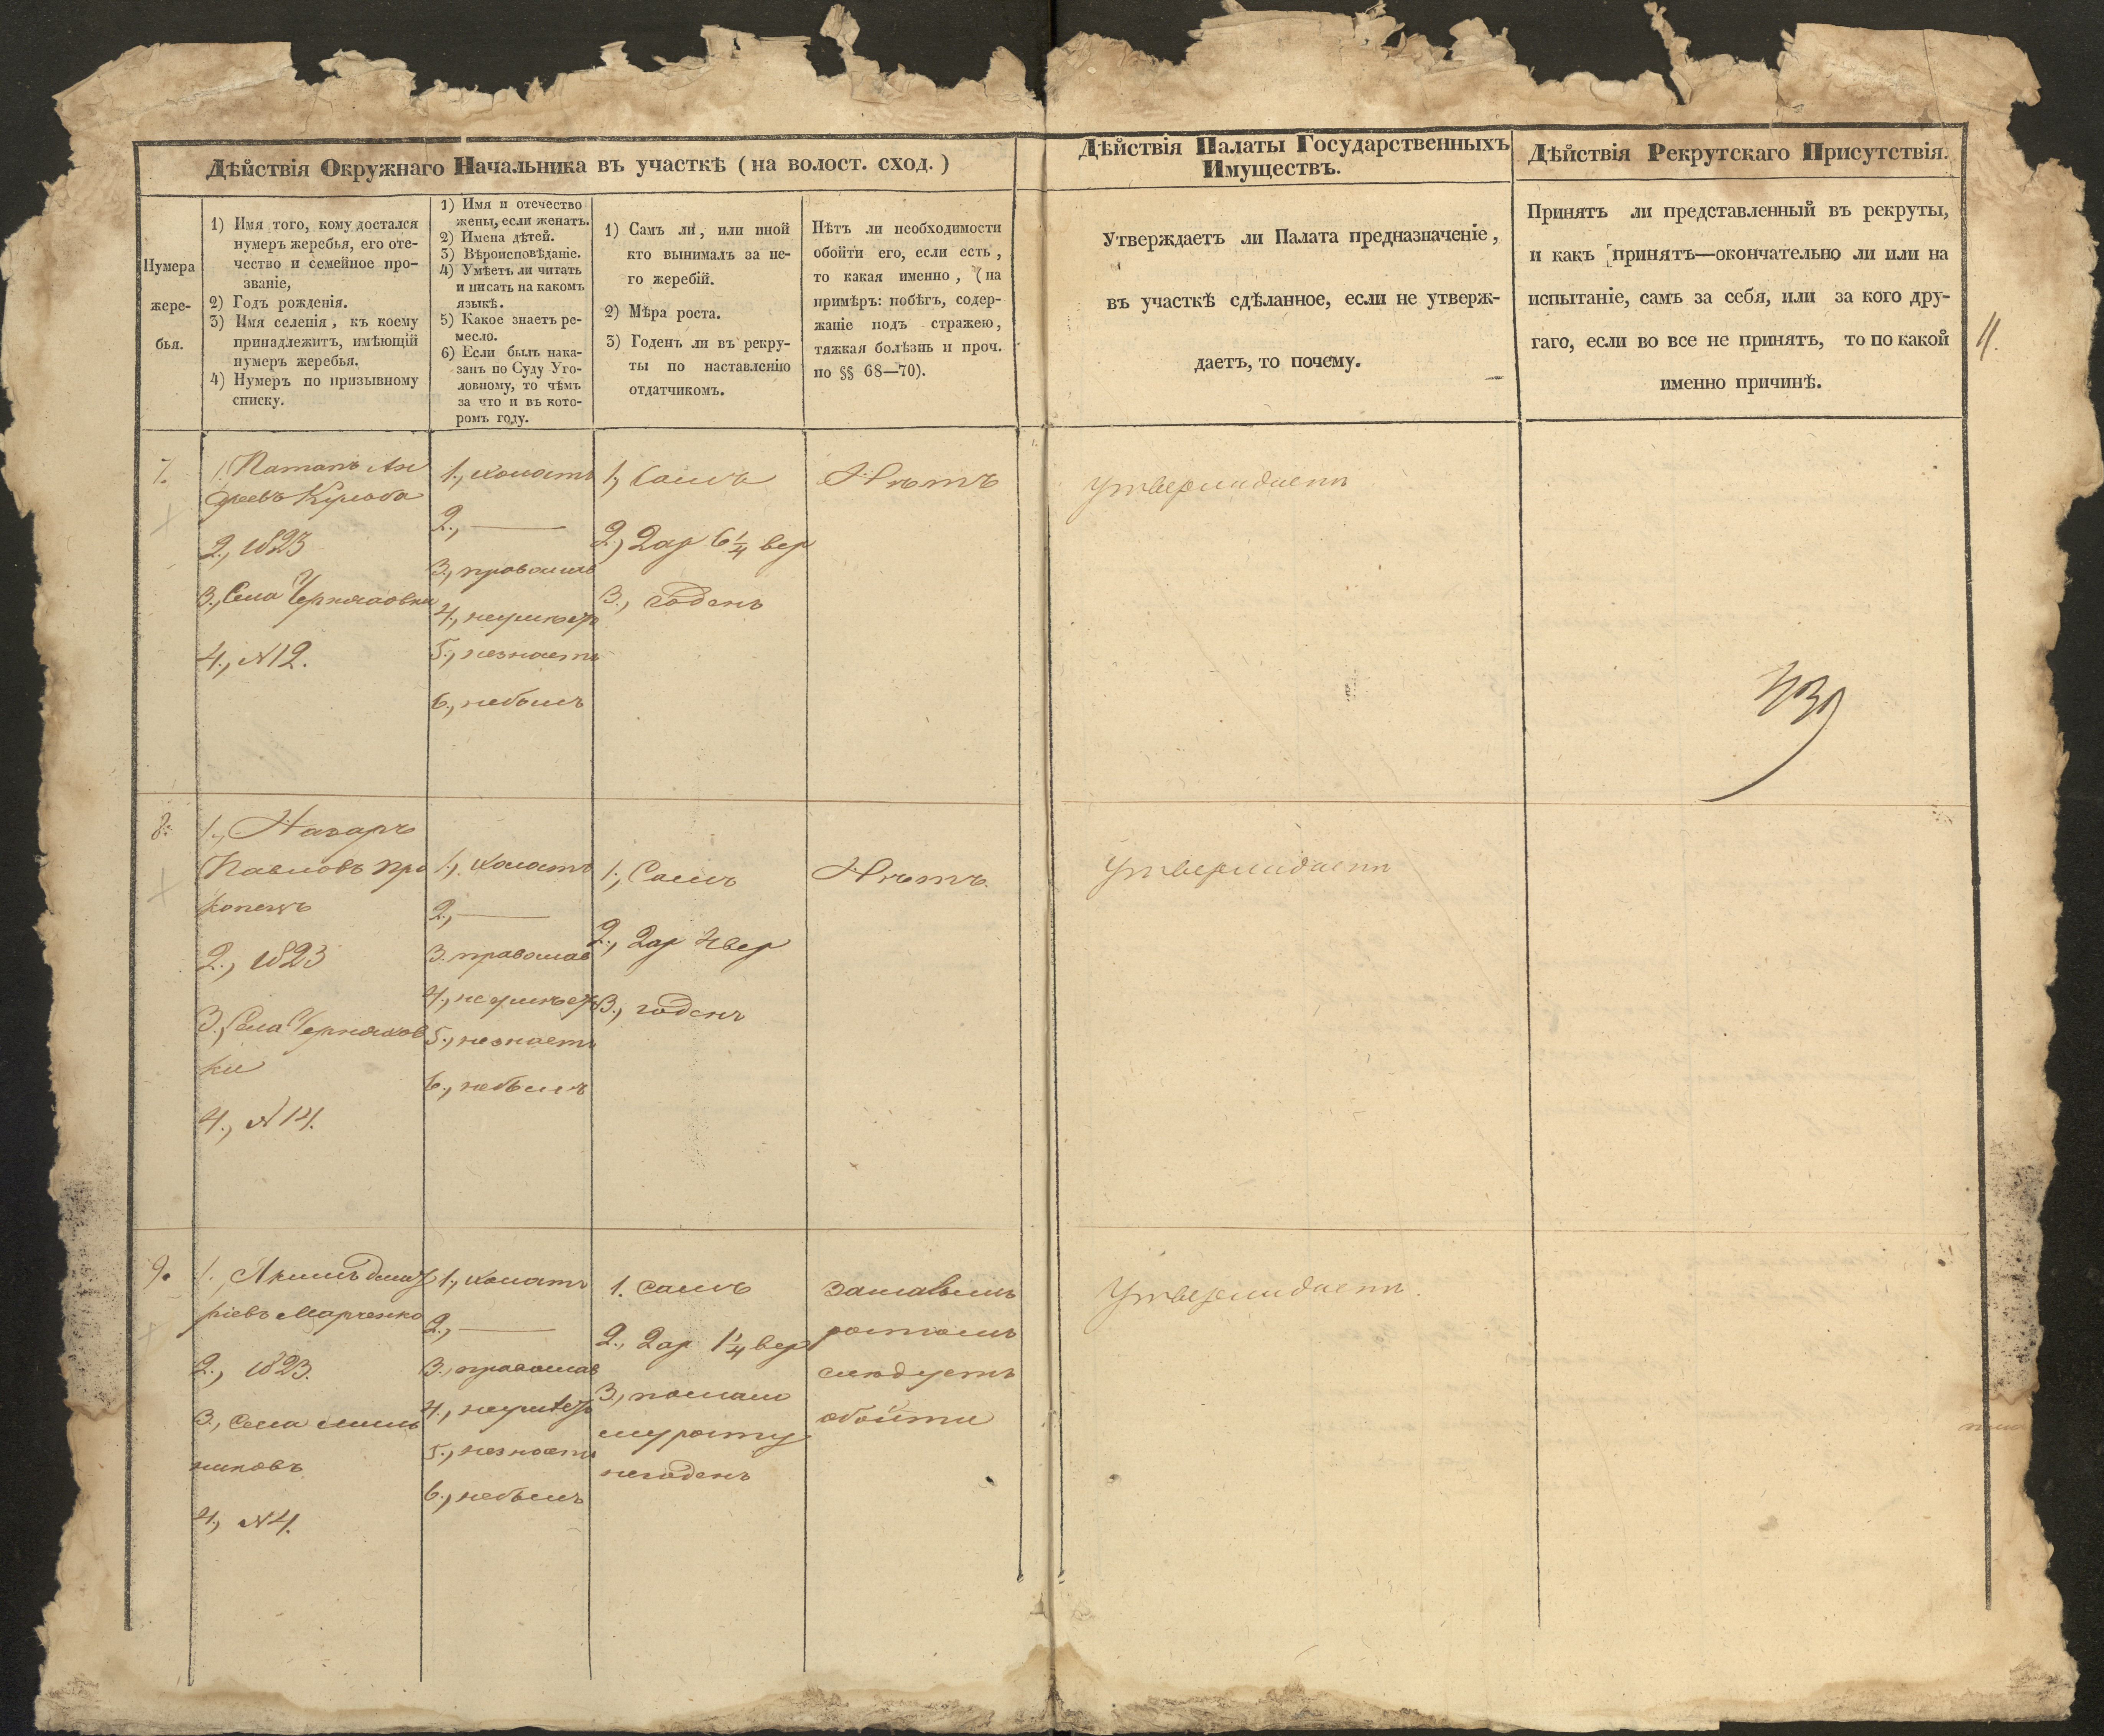 Дѣйствія Окружнаго Начальника въ участкѣ (на волост. сход.)
Нумера
жере-
бья.
1) Имя того, кому достался
нумеръ жеребья, его оте-
чество и семейное про-
званіе,
2) Годъ рожденія.
3) Имя селенія, къ коему
принадлежитъ, имѣющій
нумеръ жеребья.
4) Нумеръ по призывному
списку.
1) Имя и отечество
жены, если женатъ.
2) Имена дѣтей.
3) Вѣроисповѣданіе.
4) Умѣетъ ли читать
и писать на какомъ
языкѣ.
5) Какое знаетъ ре-
месло.
6) Если былъ нака-
занъ по Суду Уго-
ловному, то чѣмъ
за что и въ кото-
ромъ году.
1) Самъ ли, или иной
кто вынималъ за не-
го жеребій.
2) Мѣра роста.
3) Годенъ ли въ рекру-
ты по наставленію
отдатчикомъ.
Нѣтъ ли необходимости
обойти его, если есть,
то какая именно, (на
примѣръ: побѣгъ, содер-
жаніе подъ стражею,
тяжкая болѣзнь и проч.
по §§ 68—70).
Дѣйствія Палаты Государственныхъ
Имуществъ.
Утверждаетъ ли Палата предназначеніе,
въ участкѣ сдѣланное, если не утверж-
даетъ, то почему.
Дѣйствія Рекрутскаго Присутствія.
Принятъ ли представленный въ рекруты,
и какъ принятъ—окончательно ли или на
испытаніе, самъ за себя, или за кого дру-
гаго, если во все не принятъ, то по какой
именно причинѣ.
7.
1. Патапъ Ан
дреевъ
2., 1823
3., Села Черняховки
4., N12.
1., холостъ
2., —
3., православ
4., неумѣетъ
5., незнаетъ
6., небылъ
1., Самъ
2., 2 ар 6 1/4 вер
3., годенъ
Нѣтъ
Утверждаетъ
8.
1., Назаръ
Павловъ Про
копецъ
2., 1823
3., Села Черняхов
ки
4., N14.
1., холостъ
2., —
3. православ
4., неумѣетъ
5., незнаетъ
6., небылъ
1., Самъ
2., 2 ар 4 вер
3., годенъ
Нѣтъ.
Утверждаетъ
9.
1., Акимъ Дмит
ріевъ Марченко
2., 1823.
3., Села Миль
никовъ
4., N4.
1., холостъ
2., —
3., православ
4., неумѣетъ
5., незнаетъ
6., небылъ
1. самъ
2., 2 ар 1 1/4 вер
3., помало
му росту
негоденъ
замалымъ
ростомъ
слѣдуетъ
обойти
Утверждаетъ.